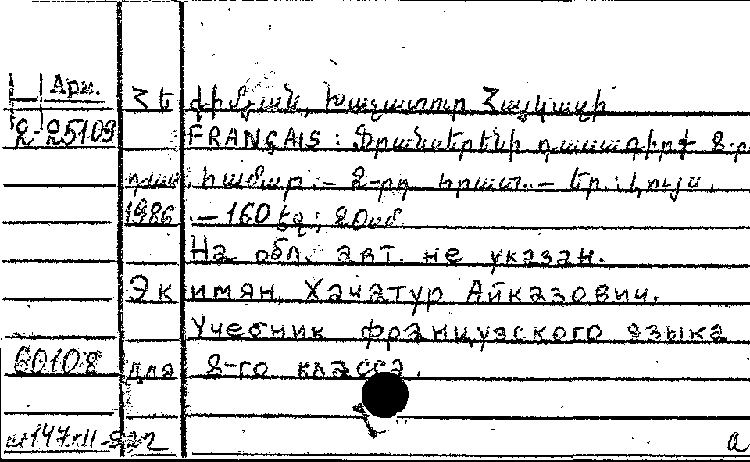 Арм.
Հե քիմյան, Խաչատուր Հայկազի
2-25109 FRANÇAIS : Ֆրանսերենի դասագիրք 8-րդ
դաս. համար.— 2-րդ հրատ.— Եր.: Լույս,
1986.— 160 էջ; 20սմ
На обл. авт. не указан.
Экимян, Хачатур Айказович.
Учебник французского языка
60108 для 8-го класса.
а